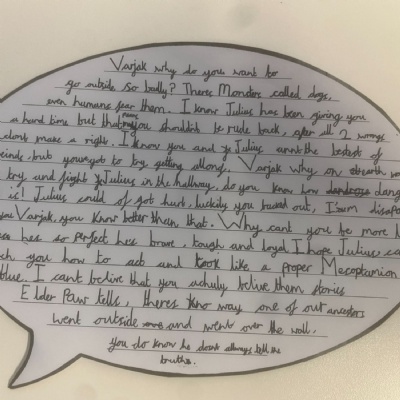 Varjak why do you want to
go outside so badly? Theres Monders called dogs,
even humans fear them. I know Julius has been giving you
a hard time but that means you shouldnt be rude back, after all 2 wrongs
dont make a right. I know you and Julius arnt the bestest of
but you got to try getting allong, Varjak Why on earth
try and fight Julius in the hallway, do you know how dang
is! Julius could of got hurt, luckily you backed out, I'sum disap
Varjak, you know better than that. Why cant you be more
hes so perfect hes brave, tough and loyal I hope Julius ca
you how to act and look like a proper Mesoptamion
blue. I cant belive that you achuly belive them stories
Elder Paw tells, theres kno way one of out ancestors
went outside and went over the wall,
you do know he dosnt allways tell the
truths.